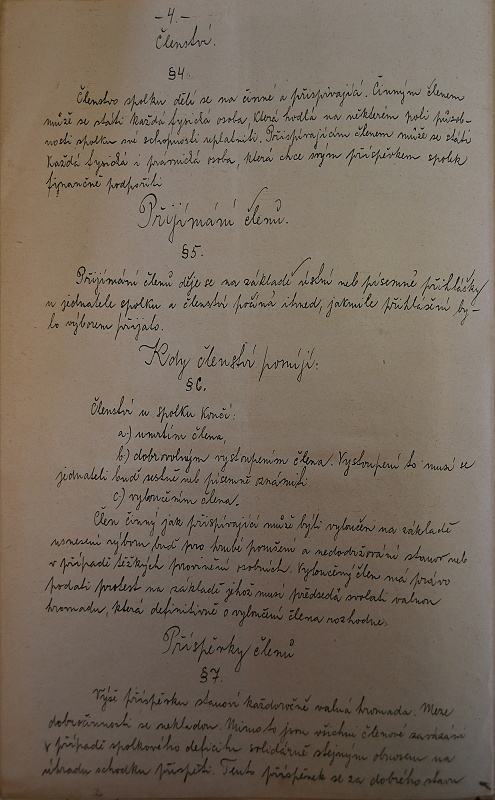 -4.-
Členství.
§4
Členstvo spolku dělí se na činné a přispívající. Činným členem
může se státi každá fysická osoba, která hodlá na některém poli působ-
nosti spolku své schopnosti uplatniti. Přispívajícím členem může se státi
každá fysická i právnická osoba, která chce svým příspěvkem spolek
finančně podpořiti
Přijímání členů.
§5.
Přijímání členů děje se na základě ústní neb písemné přihlášky
u jednatele spolku a členství počíná ihned, jakmile přihlášení by-
lo výborem přijato.
Kdy členství pomíjí:
§6.
Členství u spolku končí:
a.) umrtím člena,
b.) dobrovolným vystoupením člena. Vystoupení to musí se
jednateli buď ustně neb písemně oznámiti
c.) vyloučením člena.
Člen činný jak přispívající může býti vyloučen na základě
usnesení výboru buď pro hrubé porušení a nedodržování stanov neb
v případě těžkých provinění osobních. Vyloučený člen má právo
podati protest na základě jehož musí předseda svolati valnou
hromadu, která definitivně o vyloučení člena rozhodne.
Příspěvky členů
§7.
Výši příspěvku stanoví každoročně valná hromada. Meze
dobročinnosti se nekladou. Mimo to jsou všichni členové zavázáni
v případě spolkového deficitu solidárně stejným obnosem na
úhradu schodku přispěti. Tento příspěvek se za dobrého stavu